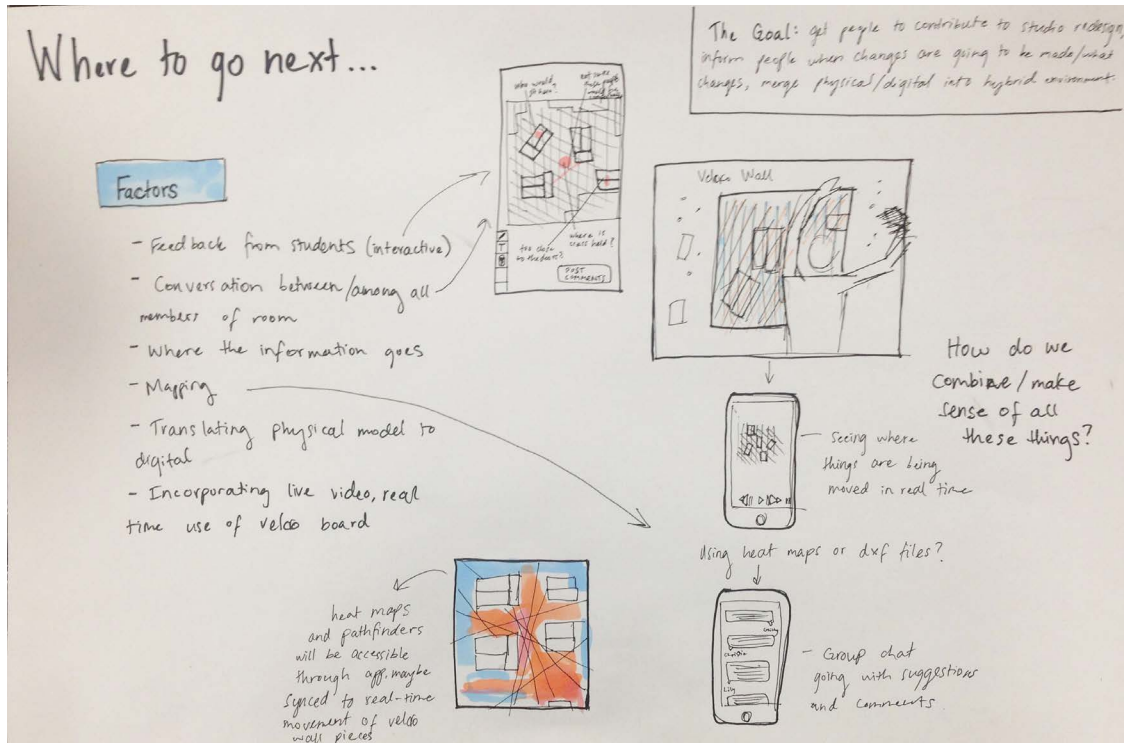 Where to go next...
The Goal: get people to contribute to studio redesign,
inform people when changes are going to be made/what
changes, merge physical/digital into hybrid environment.
Factors
- Feedback from students (interactive)
- Conversation between/among all
members of room
- Where the information goes
- Mapping
- Translating physical model to
digital
- Incorporating live video, real
time use of velcro board
who would
sit here?
not sure
people
would
too close
to the doors?
where is
class held?
POST
COMMENTS
T
Velcro Wall
How do we
combine/make
sense of all
these things?
- Seeing where
things are being
moved in real time
Using heat maps or dxf files?
- Group chat
going with suggestions
and comments
Lily
heat maps
and pathfinders
will be accessible
through app, maybe
synced to real-time
movement of velcro
wall pieces